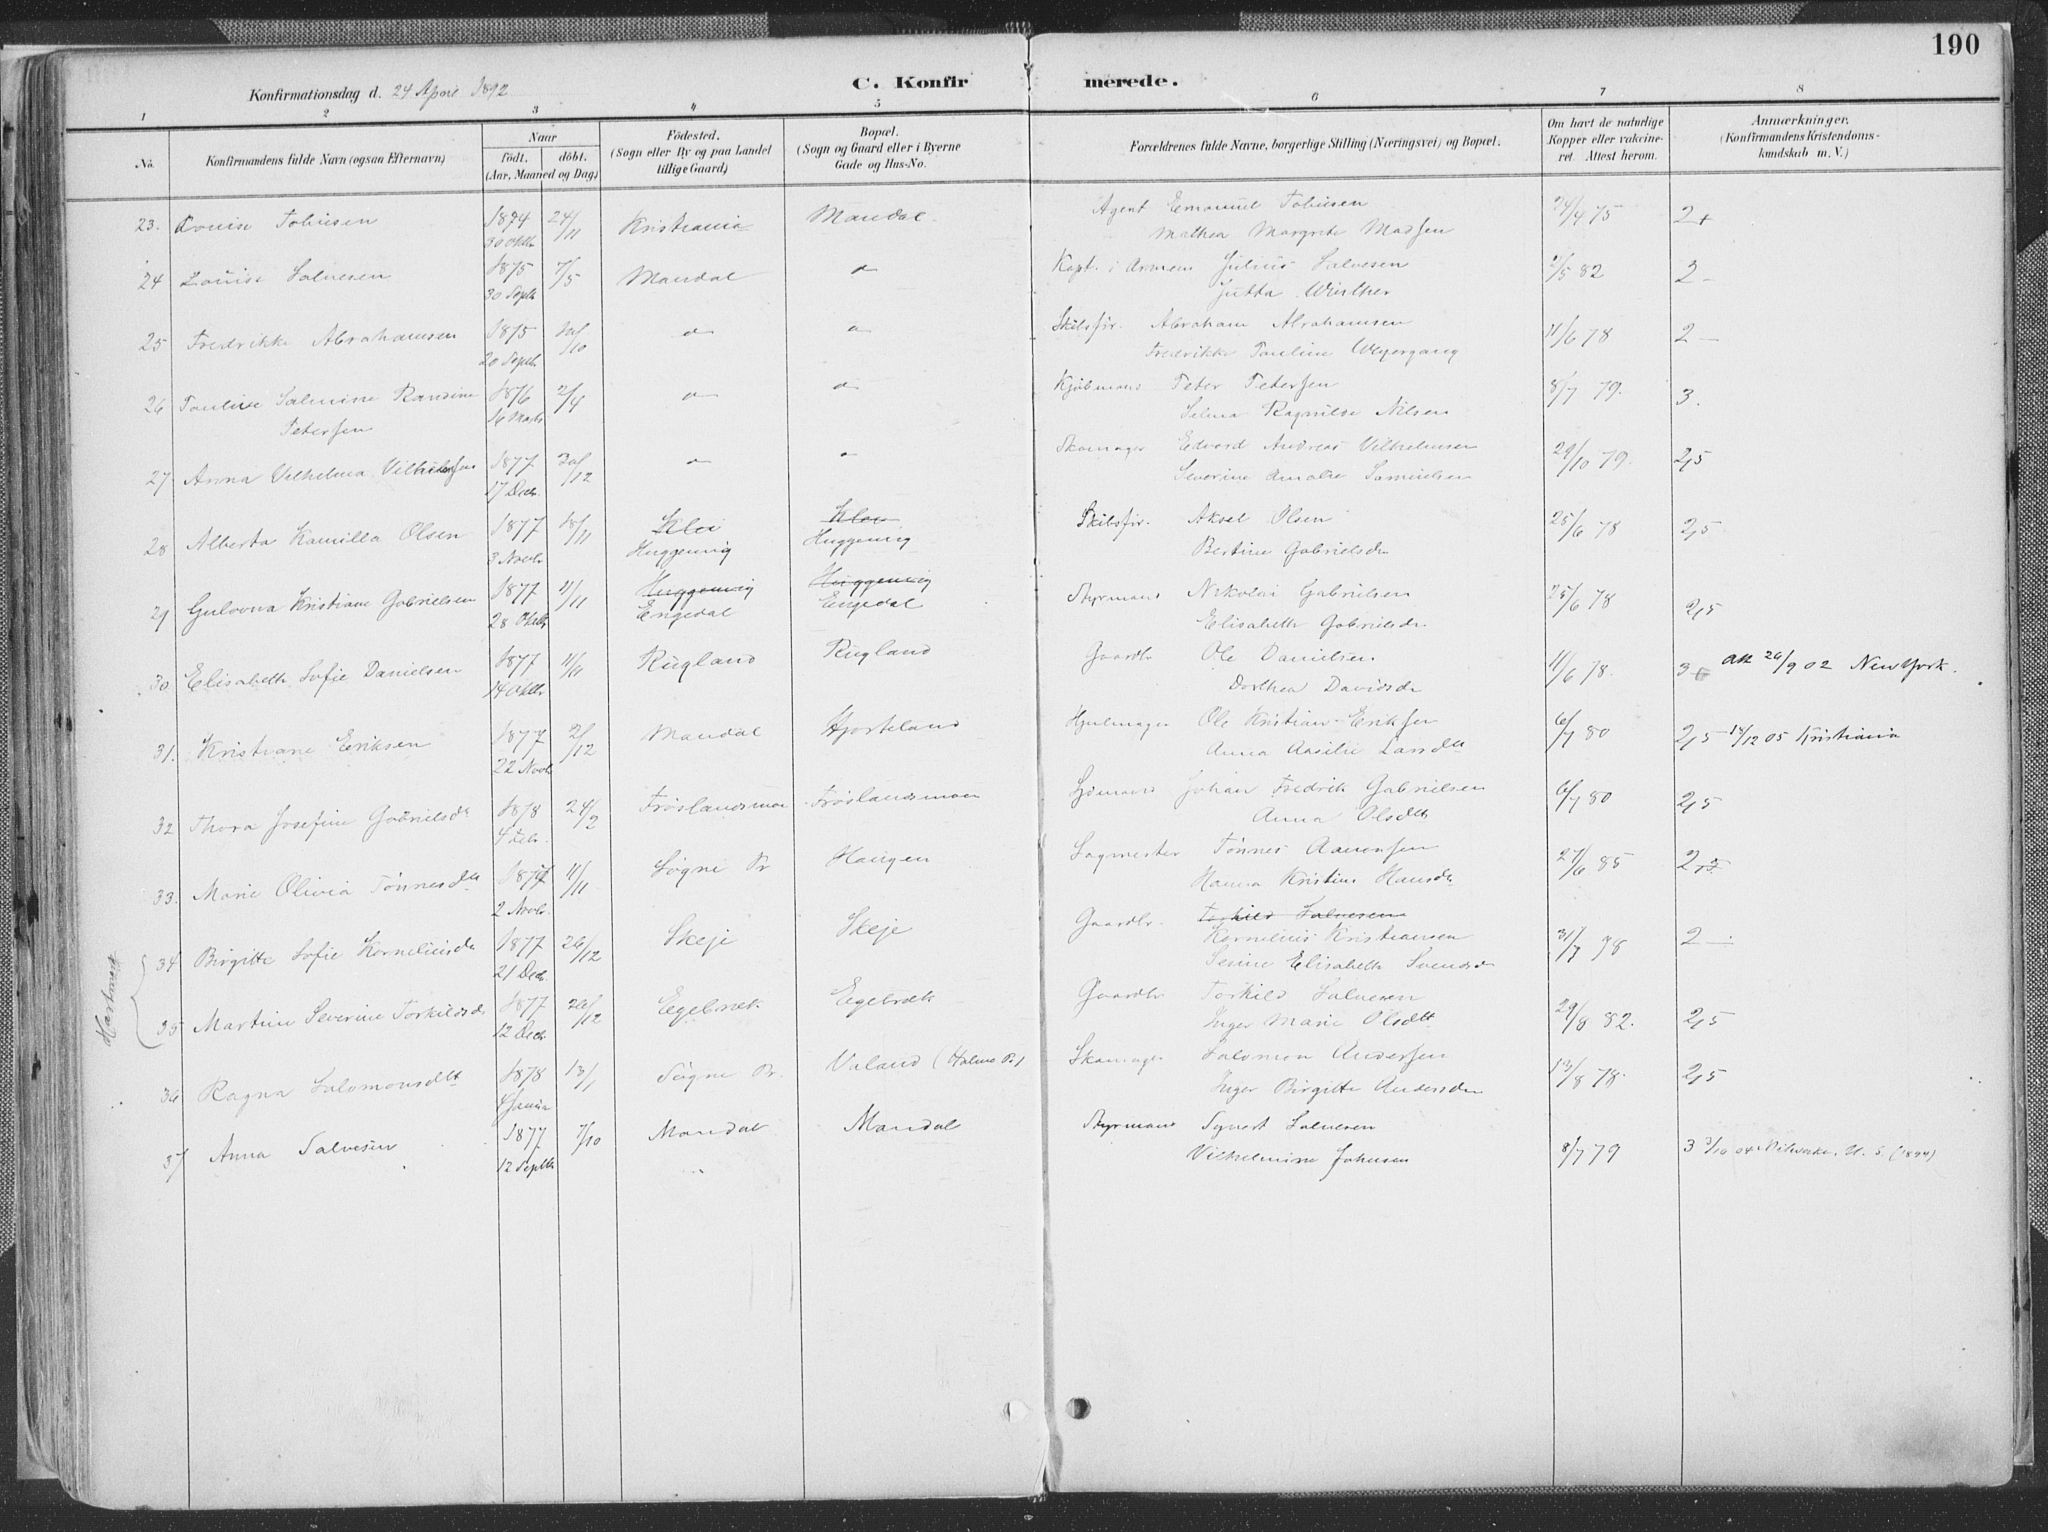 190
C. Konfirmerede.
Konfirmationsdag d. 24 April 1892
1 2 3 4 5 6 7 8
No. Konfirmandens fulde Navn (ogsaa Efternavn) Naar födt. döbt. (Aar, Maaned og Dag) Födested. (Sogn eller By og paa Landet tillige Gaard) Bopæl. (Sogn og Gaard eller i Byerne Gade og Hus-No. Forældrenes fulde Navne, borgerlige Stilling (Næringsvei) og Bopæl. Om havt de naturlige Kopper eller vakcineret. Attest herom. Anmærkninger. (Konfirmandens Kristendomskundskab m. V.)
23. Louise Tobiesen 1874 30 Oktbr 24/11 Kristiania Mandal Agent Emanuel Tobiesen 24/4 75 2+
Mathea Margrete Madsen
24 Louise Salvesen 1875 30 Septb 7/5 Mandal Kapt. i Armeen Julius Salvesen /5 82 2
Jutta Winther
25 Fredrikke Abrahamsen 1875 20 Septb /10 Skibsfør. Abraham Abrahamsen 11/6 78 2
Fredrikke Pauline Weyergang
26 Pauline Salmine Petersen 1876 16 Marts 2/4 Kjøbmand Peter Petersen 8/7 79. 3.
Selma Ragnilde Nilsen
27 Anna Vilhelma Vilhelmsen 1877 17 Decb. 30/12 Skomager Edvard Andreas Vilhelmsen 29/10 79. 2,5
Severine Amalie Samuelsen
28 Alberta Kamilla Olsen 1877 3 Novbr 18/11 Klev Huggenvig Klev Huggenvig Skibsfør. Aksel Olsen 25/6 78 2,5
Bertine Gabrielsdr
29 Gulovna Kristiane Gabrielsen 1877 28 Oktb /11 Huggenvig Engedal Huggenvig Engedal Styrmand Nikolai Gabrielsen 25/6 78 2,5
Elisabeth Gabrielsdr
30 Elisabeth Sofie Danielsen 1877 14 Oktb 11/11 Rugland Rugland Gaardbr Ole Danielsen 11/6 78. 3 att 26/9 02 New York.
Dorthea Davidsdr
31. Kristiane Eriksen 1877 22 Novb 2/12 Mandal Hjorteland Hjulmager Ole Kristian Eriksen 6/7 80 2,5 13/12 05 Kristiania
Anna Aasilie Larsdtt
32 Thora Josefine Gabrielsdr 1878 4 Febr. 24/2 Frøslandsmoen Frøslandsmoen Sjømand Johan Fredrik Gabrielsen 6/7 80 2,5
Anna Olsdtt
33. Marie Olivia Tønnesdtt 1877 2 Novbr. 11/11 Søgne Pr Haugen Sagmester Tønnes Aanonsen 27/6 85 2
Hanna Kristine Hansdtr
Hartmark
34 Birgitte Sofie Korneliusdr 1877 21 Decb 26/12 Skeje Skeje Gaardbr. Torkild Salvesen
Kornelius Kristiansen 31/7 78 2
Sesine Elisabeth Svendsdr
35 Martine Severine Torkildsdr 1877 12 Decb 26/12 Egebræk Egebræk Gaardbr Torkild Salvesen 29/8 82. 2,5
Inger Marie Olsdtt
36 Ragna Salomonsdtt 1878 4 Janua 13/1 Søgne Pr. Valand (Holme Pr) Skomager Salomon Andersen 13/8 78. 2,5
Inger Birgitte Andersdr
37 Anna Salvesen 1877 12 Septb 7/10 Mandal Mandal Styrmand Syvert Salvesen
Vilhelmine Johnsen 8/7 79 3 3/10 04 Milwauke, U. S. (1894)